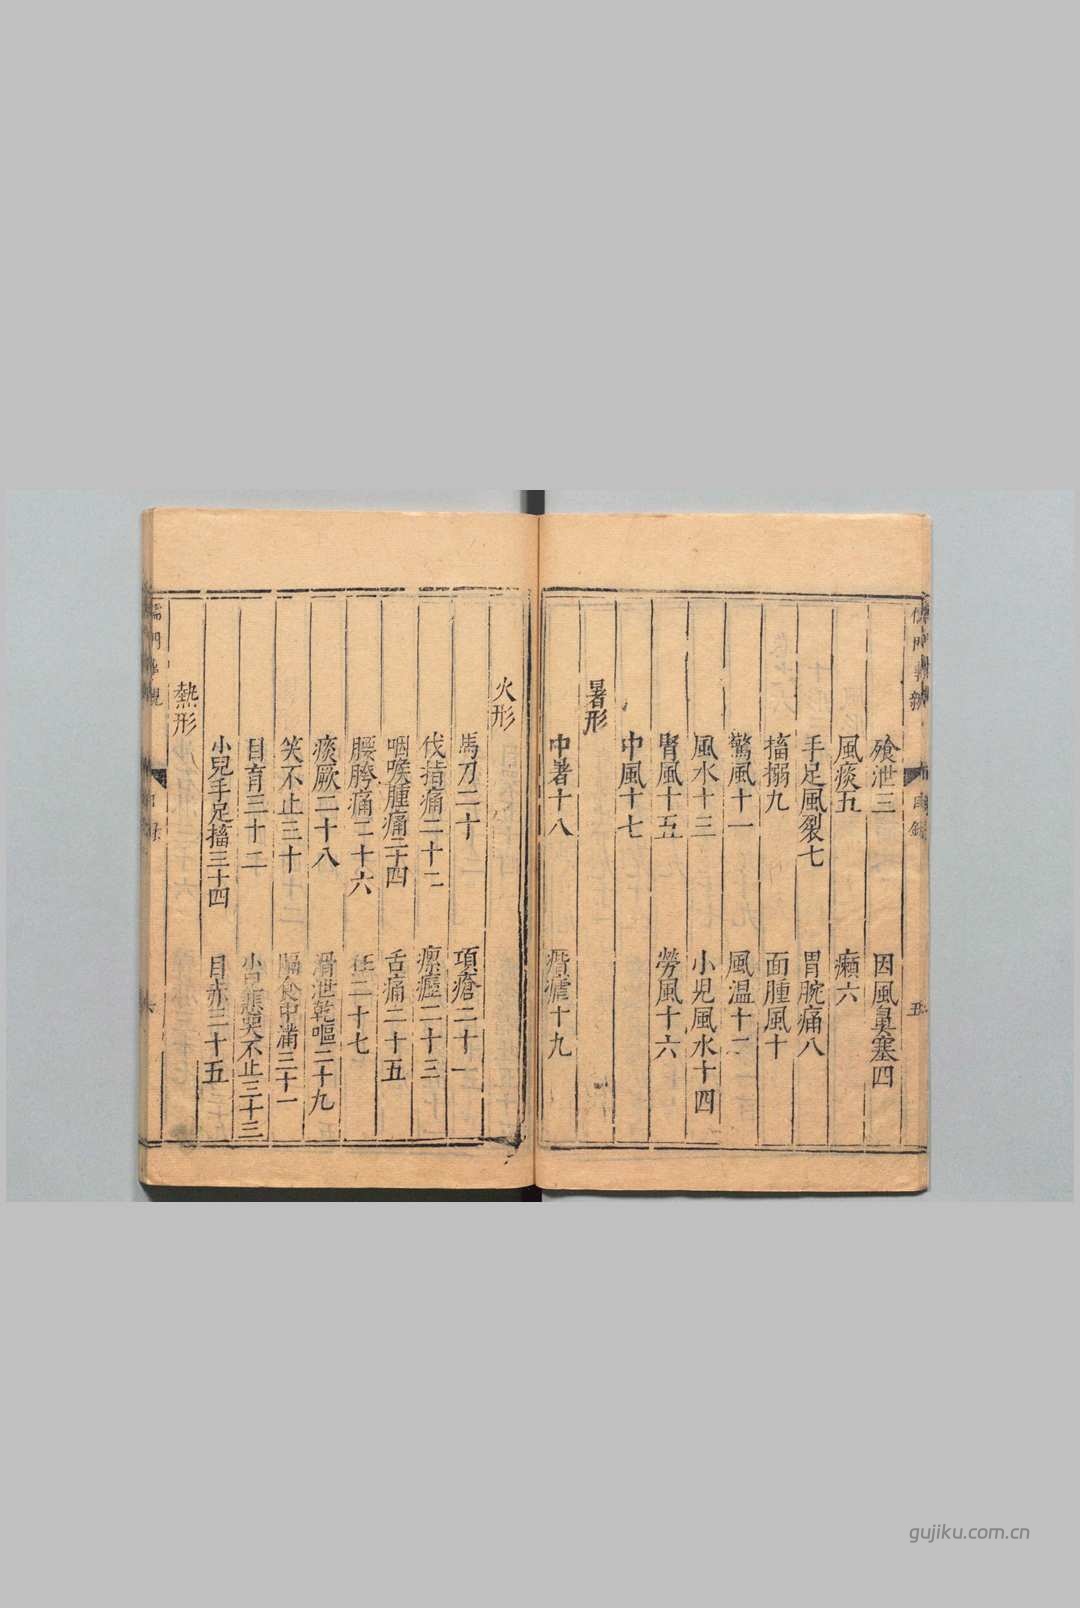 飱泄三　因風鼻塞四
風痰五　癩六
手足風裂七　胃脘痛八
搐搦九　面腫風十
驚風十一　風温十二
風水十三　小児風水十四
腎風十五　勞風十六
中風十七
暑形
中暑十八　痎瘧十九
火形
馬刀二十　項瘡二十一
代指痛二十二　瘰癧二十三
咽喉腫痛二十四　舌痛二十五
腰胯痛二十六　狂二十七
痰厥二十八　滑泄乾嘔二十九
笑不止三十　膈食中滿三十一
目盲三十二　小兒悲哭不止三十三
小兒手足搐三十四　目赤三十五
熱形
gujiku.com.cn